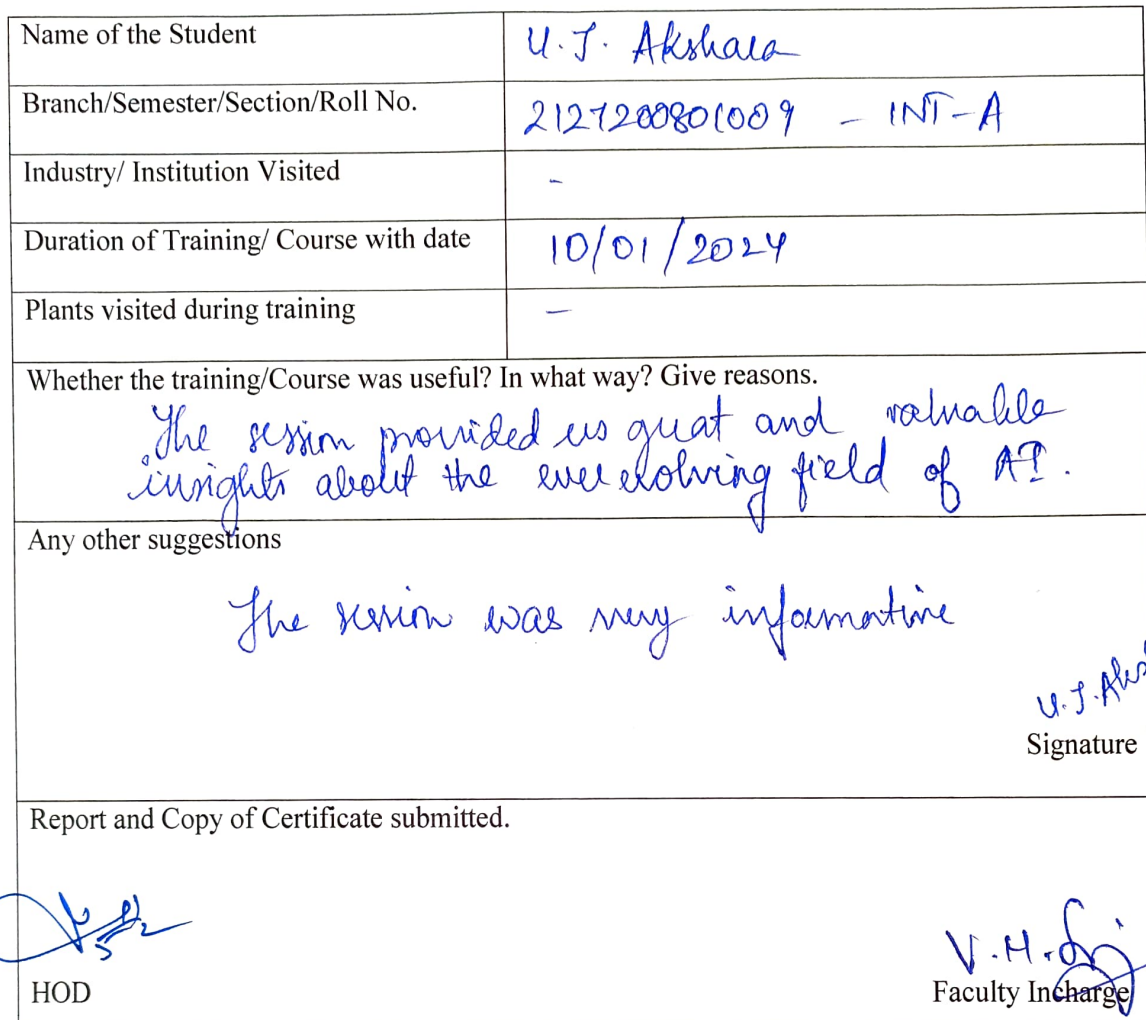 Name of the Student U.J. Akshara
Branch/Semester/Section/Roll No. 212720801009 - INT-A
Industry/ Institution Visited -
Duration of Training/ Course with date 10/01/2024
Plants visited during training -
Whether the training/Course was useful? In what way? Give reasons.
The session provided us great and valuable
insights about the ever evolving field of AI.
Any other suggestions
The session was very informative
U.J.Aks
Signature
Report and Copy of Certificate submitted.
V.H.
HOD Faculty Incharge